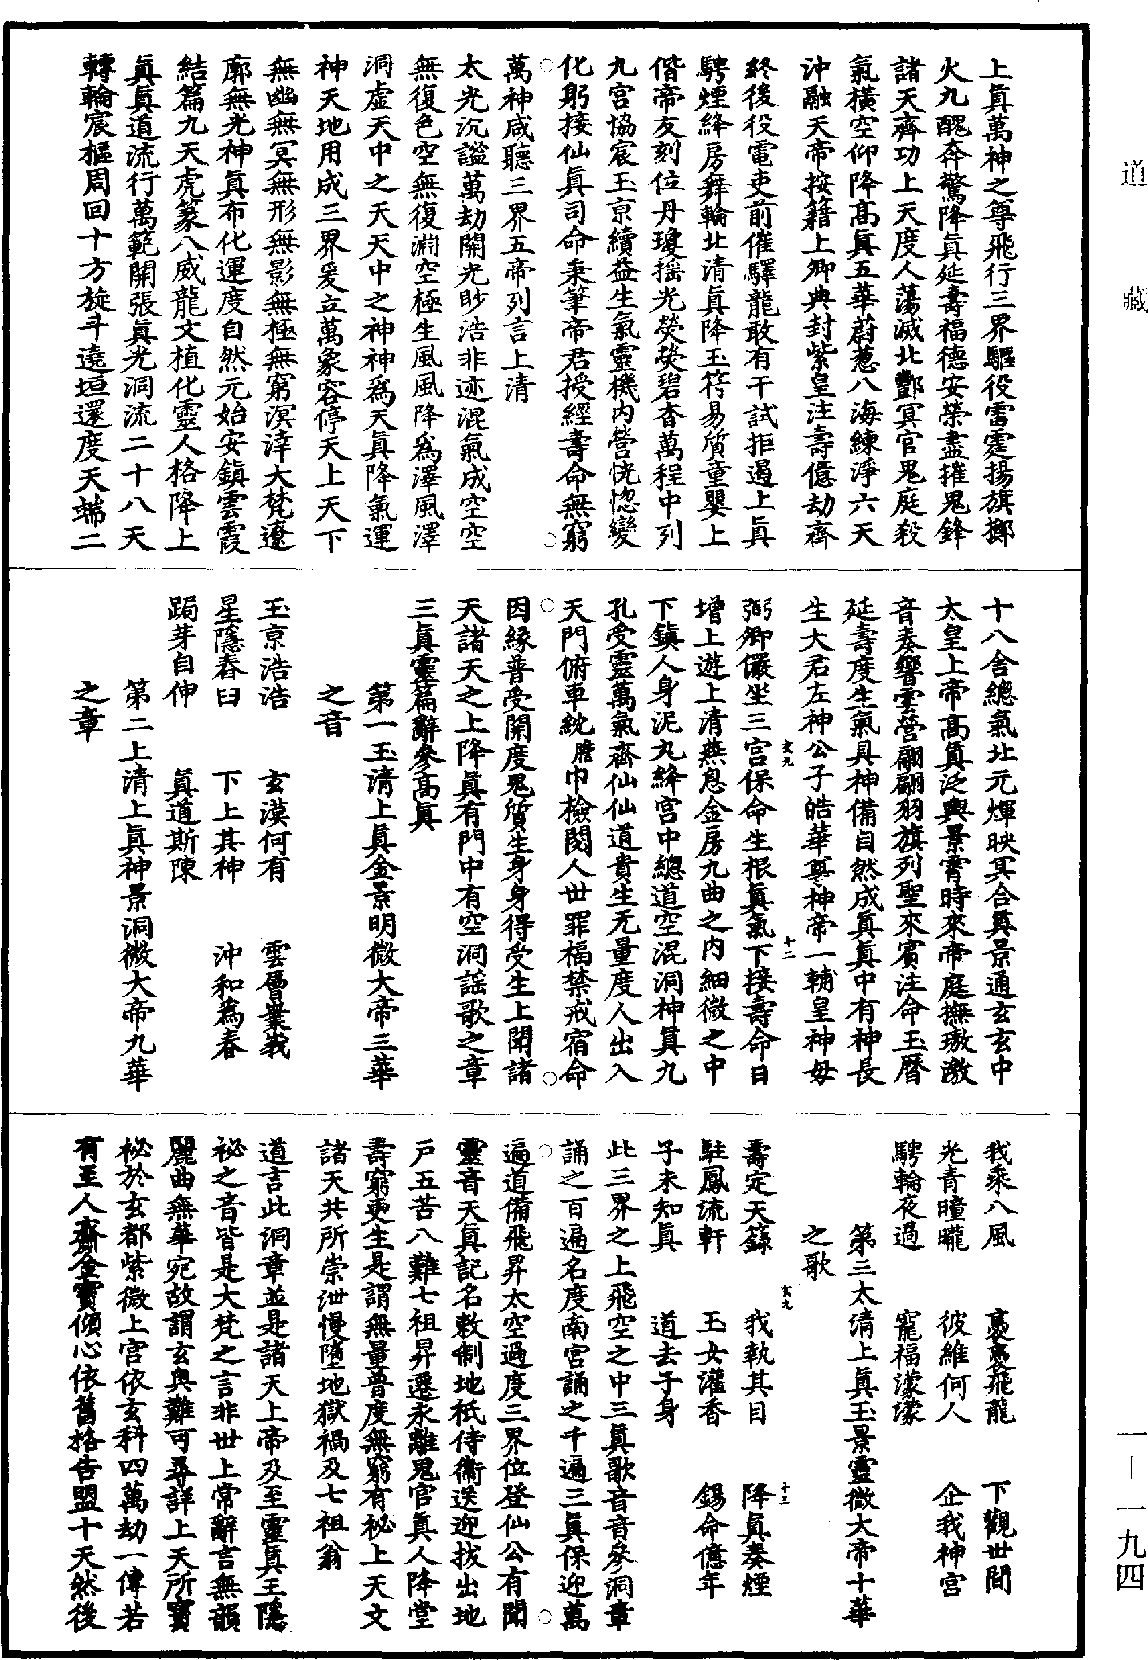 道藏
上眞萬神之尊飛行三界驅役雷霆揚旗擲
火九醜奔驚降眞延壽福德安榮盡摧鬼鋒
諸天齊功上天度人蕩滅北酆冥官鬼庭殺
氣橫空仰降高眞五華蔚葱八海練淨六天
沖融天帝按籍上卿典封紫皇注壽億劫齊
終後役電吏前催驛龍敢有干試拒遏上眞
騁煙絳房舞輪北清眞降玉符易質童嬰上
偕帝友刻位丹瓊搖光熒熒碧杳萬程中列
九宮協宸玉京續益生氣靈機內營恍惚變
化躬接仙眞司命秉筆帝君授經壽命無窮
萬神咸聽三界五帝列言上清
太光沉謐萬劫開光眇浩非迹混氣成空空
無復色空無復淵空極生風風降爲澤風澤
洞虛天中之天天中之神神爲天眞降氣運
神天地用成三界爰立萬象容停天上天下
無幽無冥無形無影無極無窮溟涬大梵遼
廓無光神眞布化運度自然元始安鎮雲霞
結篇九天虎篆八威龍文植化靈人格降上
眞眞道流行萬範開張眞光洞流二十八天
轉輪宸樞周回十方旋斗遶垣還度天端二
十八舍總氣北元煇映冥合眞景通玄玄中
太皇上帝高眞泛輿景霄時來帝庭撫璈激
音奏響雲營翩翩羽旗列聖來賓注命玉曆
延壽度生氣具神備自然成眞眞中有神長
生大君左神公子皓華眞神帝一輔皇神母
弼卿儼坐三宮保命生根眞氣下接壽命日
玄九
十二
增上遊上清燕息金房九曲之內細微之中
下鎮人身泥丸絳宮中總道空混洞神眞九
孔受靈萬氣齊仙仙道貴生无量度人出入
天門俯車統膽巾檢閱人世罪福禁戒宿命
因緣普受開度鬼質生身身得受生上聞諸
天諸天之上降眞有門中有空洞謠歌之章
三眞靈篇辭參高眞
第一玉清上眞金景明微大帝三華
之音
玉京浩浩　玄漠何有　雲層業峩
星隱舂臼　下上其神　沖和爲春
跼芽自伸　眞道斯陳
第二上清上眞神景洞微大帝九華
之章
我乘八風　裊裊飛龍　下觀世間
光青曈曨　彼維何人　企我神宮
騁輪夜過　寵福濛濛
第三太清上眞玉景靈微大帝十華
之歌
壽定天籙　我執其目　降眞奏煙
玄九
十三
駐鳳流軒　玉女灌香　錫命億年
子未知眞　道去子身
此三界之上飛空之中三眞歌音音參洞章
誦之百遍名度南宮誦之千遍三眞保迎萬
遍道備飛昇太空過度三界位登仙公有聞
靈音天眞記名敕制地祇侍衞送迎拔出地
戶五苦八難七祖昇遷永離鬼官眞人降堂
壽窮更生是謂無量普度無窮有祕上天文
諸天共所崇泄慢墮地獄禍及七祖翁
道言此洞章並是諸天上帝及至靈眞王隱
祕之音皆是大梵之言非世上常辭言無韻
麗曲無華宛故謂玄奥難可尋詳上天所寶
祕於玄都紫微上宮依玄科四萬劫一傳若
有至人齎金寶傾心依舊格告盟十天然後
一—一九四